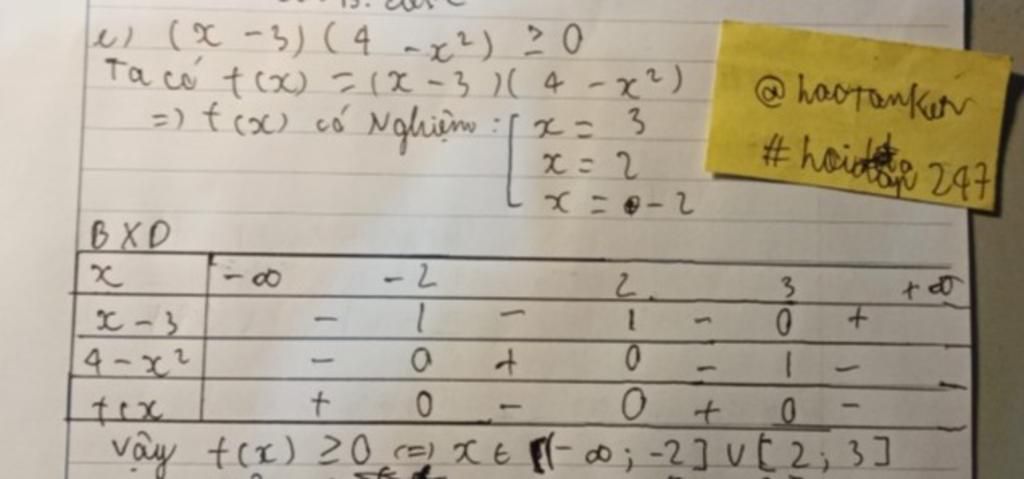 e) (x - 3)(4 - x²) ≥ 0
Ta có f(x) = (x - 3)(4 - x²)
=) f(x) có Nghiệm: [ x = 3
x = 2
x = -2
@haotanker
#hoidap247
BXD
x -∞ -2 2 3 +∞
x - 3 - | - | - 0 +
4 - x² - 0 + 0 - | -
f(x + 0 - 0 + 0 -
Vậy f(x) ≥ 0 (=) x ∈ (-∞; -2] ∪ [2; 3]